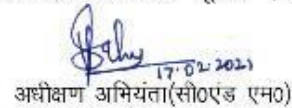 17.02.2021
अधीक्षण अभियंता(सी0एंड एम0)